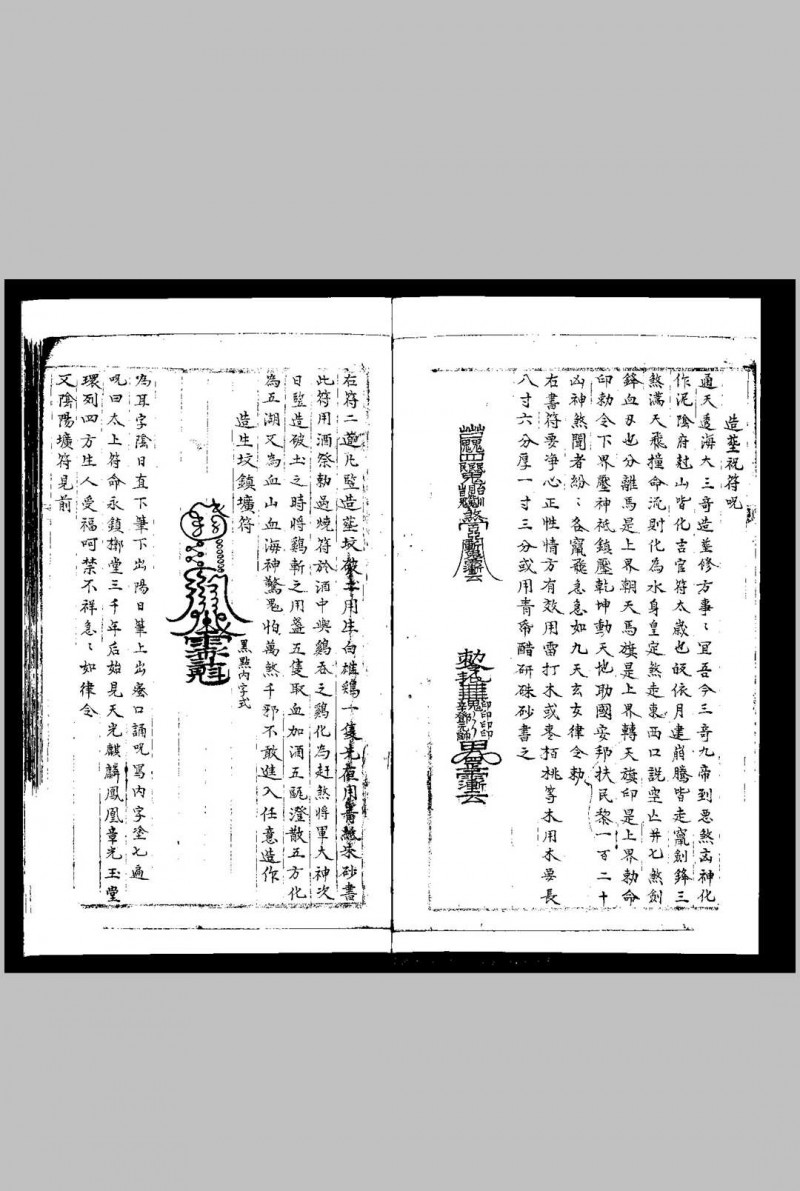 造塋祝符呪
通天透海大三奇造塋修方事〻宜吾今三奇九帝到惡煞凶神化
作泥陰府尅山皆化吉官符太歲也皈依月建崩騰皆走竄劍鋒三
煞滿天飛撞命流則化為水身皇定煞走東西口説空亡井七煞劍
鋒血刃也分離馬是上界朝天馬旗是上界轉天旗印是上界勅命
印勅令下界壓神祇鎮壓乾坤動天地助國安邦扶民黎一百二十
凶神煞聞者紛〻各竄飛急急如九天玄女律令勅
右書符要淨心正性情方有效用雷打木或棗栢桃等木用木要長
八寸六分厚一寸三分或用青帋醋研硃砂書之
右符二道凡監造塋墳破土用生白雄鷄一隻先夜用青紙硃砂書
此符用酒祭勅過燒符於酒中與鷄吞之鷄化為赶煞將軍大神次
日監造破土之時將鷄斬之用盞五隻取血加酒五甌澄散五方化
為五湖又為血山血海神驚鬼怕萬煞千邪不敢進入任意造作
造生坟鎮壙符
黑點內字式
為耳字陰日直下筆下出陽日筆上出變口誦呪寫內字塗七遍
呪曰太上符命永鎮槨堂三千年后始見天光麒麟鳳凰章光玉堂
環列四方生人受福呵禁不祥急〻如律令
又陰陽壙符見前